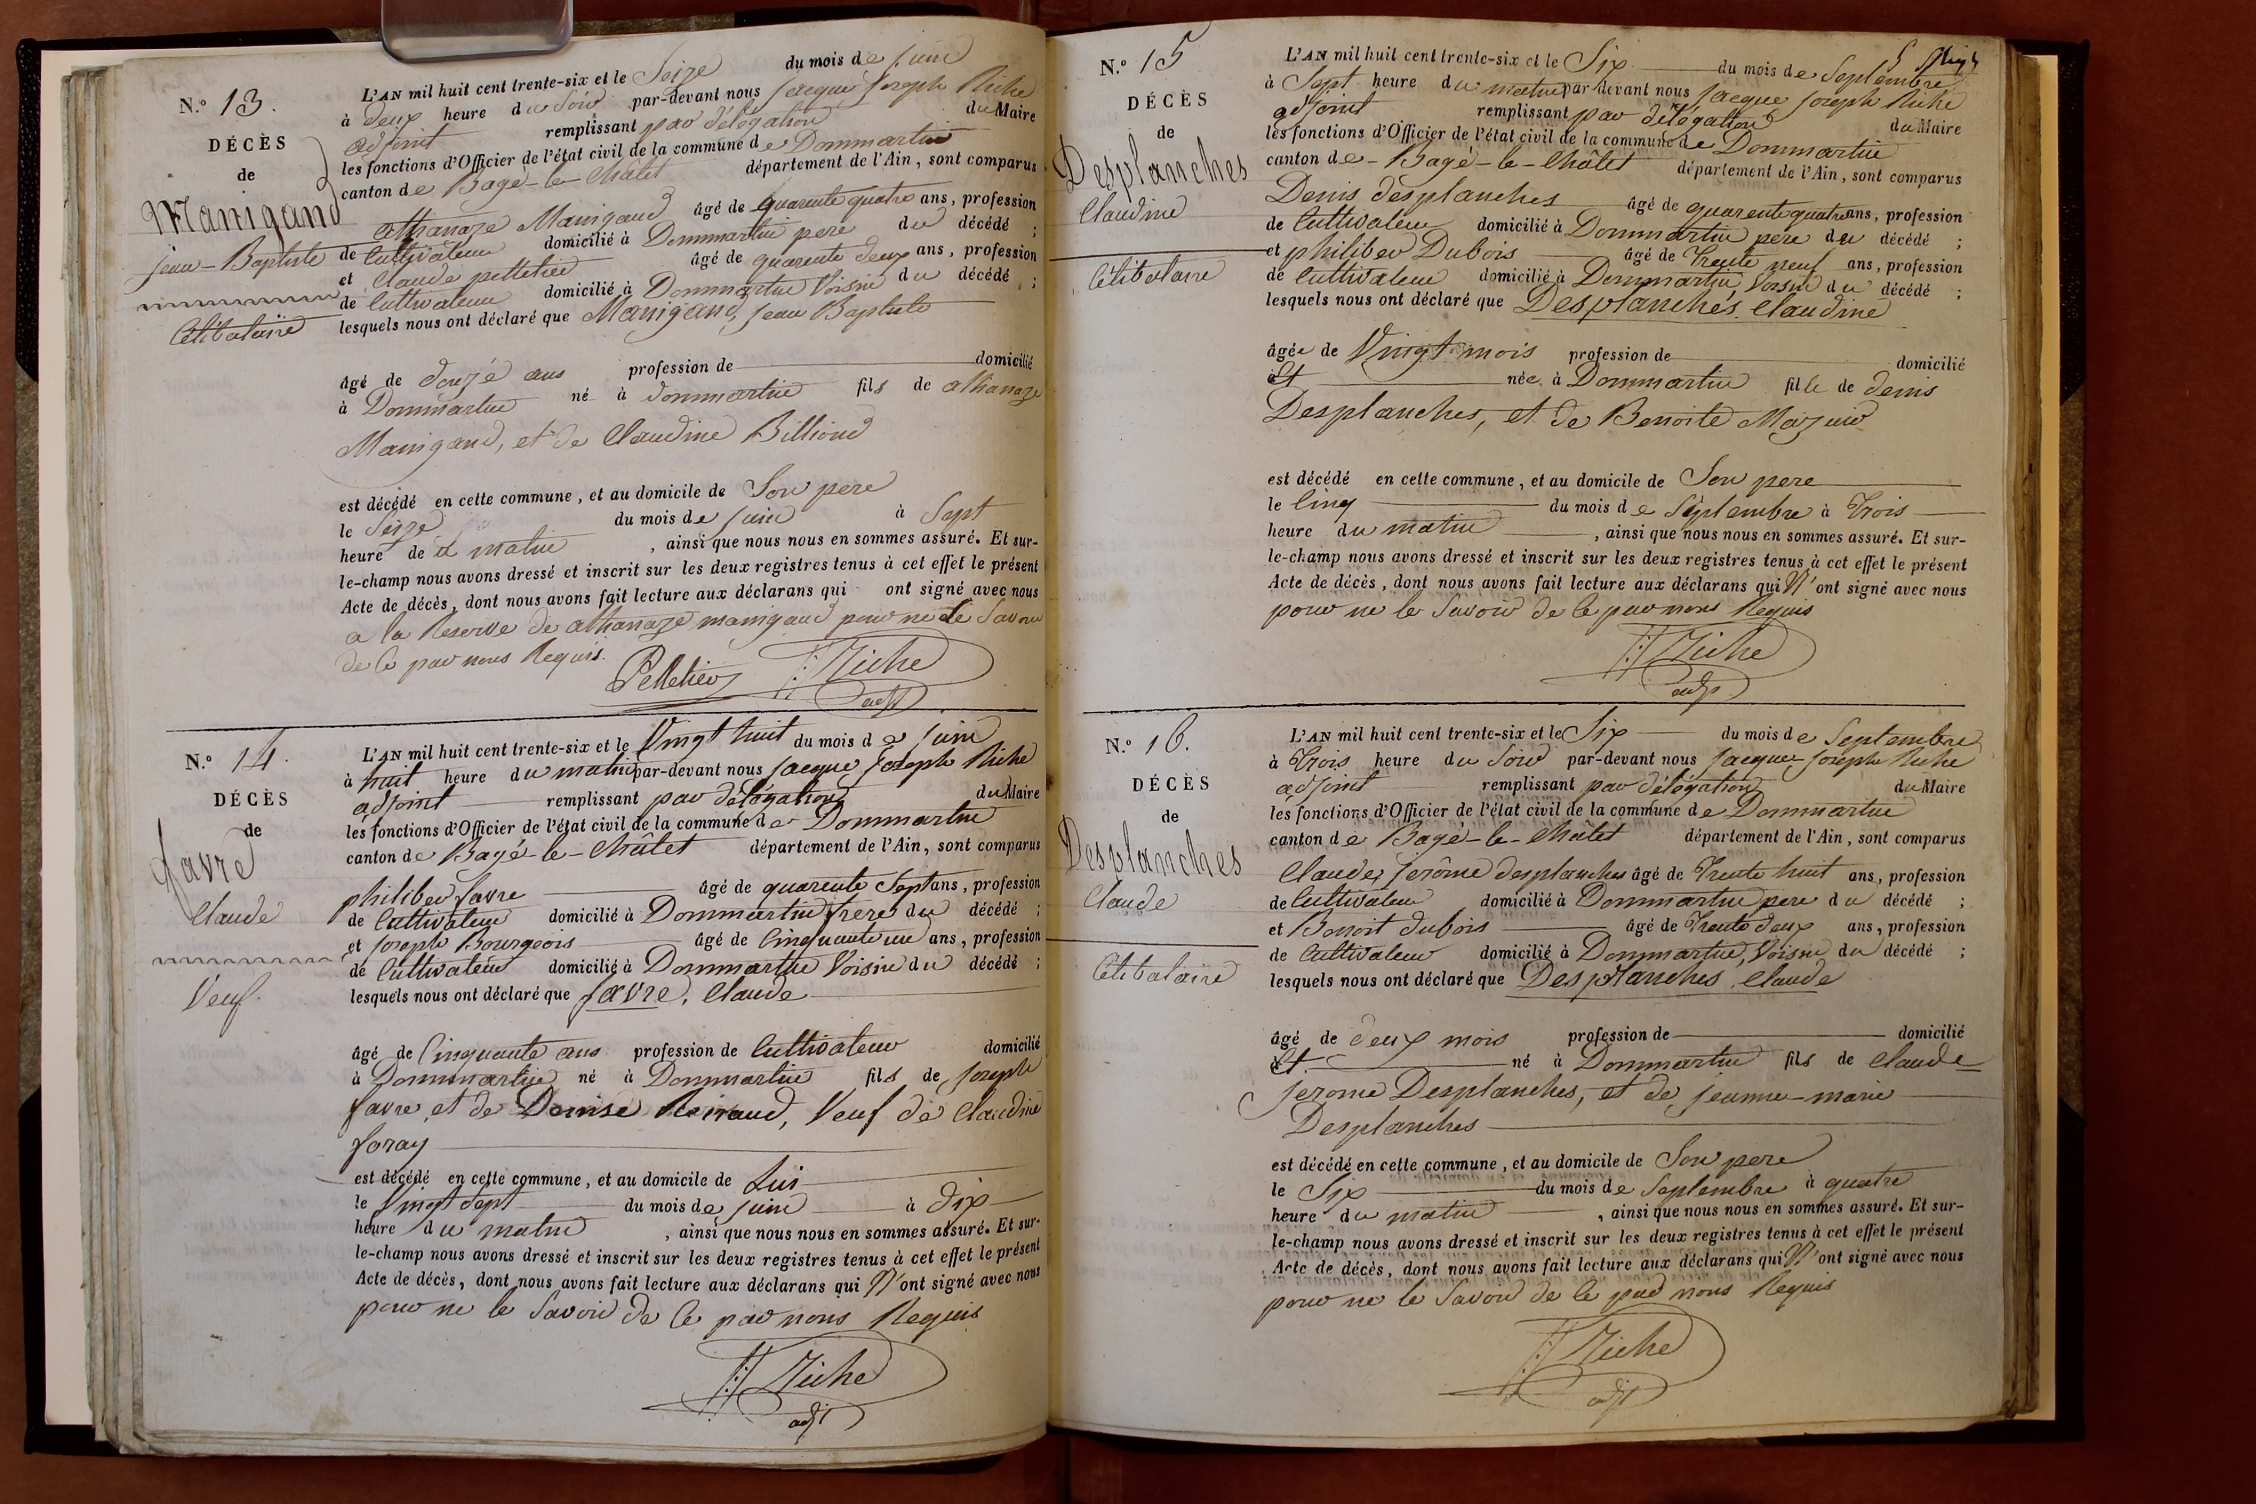 N.º 13.
DÉCÈS
de
Manigand
jean-Baptiste
Célibataire
L'AN mil huit cent trente-six et le Seize du mois de juin
à deux heure du soir par-devant nous jacque joseph Riche
adjoint remplissant par délégation du Maire
les fonctions d'Officier de l'état civil de la commune de Dommartin
canton de Bagé-le-Châtel département de l'Ain, sont comparus
athanaze Manigand âgé de quarente quatre ans, profession
de Cultivateur domicilié à Dommartin pere du décédé ;
et Claude pelletier âgé de quarente deux ans, profession
de Cultivateur domicilié à Dommartin Voisin du décédé ;
lesquels nous ont déclaré que Manigand, jean Baptiste
âgé de douze ans profession de domicilié
à Dommartin né à dommartin fils de athanaze
Manigand, et de Claudine Billioud
est décédé en cette commune, et au domicile de Son pere
le Seize du mois de juin à Sept
heure de matin, ainsi que nous nous en sommes assuré. Et sur-
le-champ nous avons dressé et inscrit sur les deux registres tenus à cet effet le présent
Acte de décès, dont nous avons fait lecture aux déclarans qui ont signé avec nous
a la Reserve de athanaze manigand pour ne le Savoir
de ce par nous Requis.
Pelletier Riche
adjt
N.º 14.
DÉCÈS
de
favre
Claude
Veuf.
L'AN mil huit cent trente-six et le Vingt huit du mois de juin
à huit heure du matin par-devant nous jacque joseph Riche
adjoint remplissant par délégation du Maire
les fonctions d'Officier de l'état civil de la commune de Dommartin
canton de Bagé-le-Châtel département de l'Ain, sont comparus
philiber favre âgé de quarente Sept ans, profession
de Cultivateur domicilié à Dommartin frere du décédé ;
et joseph Bourgeois âgé de Cinquante un ans, profession
de Cultivateur domicilié à Dommartin Voisin du décédé ;
lesquels nous ont déclaré que favre, Claude
âgé de Cinquante ans profession de Cultivateur domicilié
à Dommartin né à Dommartin fils de joseph
favre, et de Denise Reiraud, Veuf de Claudine
foray
est décédé en cette commune, et au domicile de Lui
le Vingt Sept du mois de juin à dix
heure du matin, ainsi que nous nous en sommes assuré. Et sur-
le-champ nous avons dressé et inscrit sur les deux registres tenus à cet effet le présent
Acte de décès, dont nous avons fait lecture aux déclarans qui N'ont signé avec nous
pour ne le Savoir de Ce par nous Requis
Riche
adjt
N.º 15
DÉCÈS
de
Desplanches
Claudine
Célibataire
L'AN mil huit cent trente-six et le Six du mois de Septembre
à Sept heure du matin par-devant nous jacque joseph Riche
adjoint remplissant par délégation du Maire
les fonctions d'Officier de l'état civil de la commune de Dommartin
canton de - Bagé-le-Châtel département de l'Ain, sont comparus
Denis desplanches âgé de quarente quatre ans, profession
de Cultivateur domicilié à Dommartin pere du décédé ;
et philiber Dubois âgé de Trente neuf ans, profession
de Cultivateur domicilié à Dommartin, Voisin du décédé ;
lesquels nous ont déclaré que Desplanches. Claudine
âgée de Vingt mois profession de domicilié
à Et née à Dommartin fille de denis
Desplanches, et de Benoite Mazuir
est décédé en cette commune, et au domicile de Son pere
le Cinq du mois de Septembre à Trois
heure du matin, ainsi que nous nous en sommes assuré. Et sur-
le-champ nous avons dressé et inscrit sur les deux registres tenus à cet effet le présent
Acte de décès, dont nous avons fait lecture aux déclarans qui N'ont signé avec nous
pour ne le Savoir de Ce par nous Requis
Riche
adjt
N.º 16.
DÉCÈS
de
Desplanches
Claude
Célibataire
L'AN mil huit cent trente-six et le Six du mois de Septembre
à Trois heure du Soir par-devant nous jacque joseph Riche
adjoint remplissant par délégation du Maire
les fonctions d'Officier de l'état civil de la commune de Dommartin
canton de Bagé-le-Châtel département de l'Ain, sont comparus
Claude, jerôme desplanches âgé de Trente huit ans, profession
de Cultivateur domicilié à Dommartin pere du décédé ;
et Benoit dubois âgé de Trente deux ans, profession
de Cultivateur domicilié à Dommartin, Voisin du décédé ;
lesquels nous ont déclaré que Desplanches, Claude
âgé de deux mois profession de domicilié
à Et né à Dommartin fils de Claude
jerome Desplanches, et de jeanne-marie
Desplanches
est décédé en cette commune, et au domicile de Son pere
le Six du mois de Septembre à quatre
heure du matin, ainsi que nous nous en sommes assuré. Et sur-
le-champ nous avons dressé et inscrit sur les deux registres tenus à cet effet le présent
Acte de décès, dont nous avons fait lecture aux déclarans qui N'ont signé avec nous
pour ne le Savoir de Ce par nous Requis
Riche
adjt